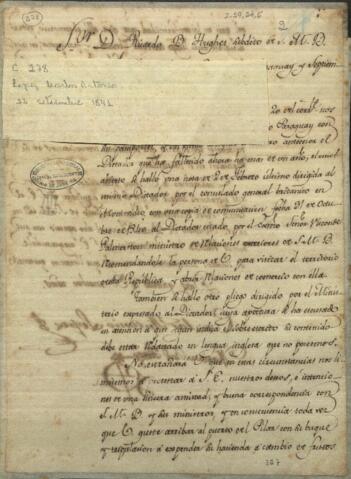 278
2-29,24,5
2
Sor. D. Ricardo B. Hughes Subdito de S. M. B.
C 278
Lopez Carlos Antonio
22 setiembre 1841
guay y Septiem
20 del corr. nos
Paraguay con
anterior el
Dictador que ha fallando ahora no mas de un año, el cual
abierto se halló una nota de 2 de Febrero último dirigida al
mismo Dictador por el consulado general britanico en
Montevideo con una copia de comunicacion fecha 31 de Octu
bre de 840 al Dictador citado por el Exmo Señor Viconde
Palmerston ministro de Naciones exteriores de S. M. B.
recomendandole la persona de V. para visitar el territorio
desta Republica y abrir relaciones de comercio con ella.
Tambien se halló otro pliego dirigido por el Minis
terio expresado al Dictador cuya apertura se ha escusado
en atencion a que segun indica el sobre escrito su contenido
debe estar redactado en lengua inglesa que no poseemos.
No estrañará V. que en estas circunstancias nos li
mitemos a protestar a S. E. nuestros deseos, e intencio
nes de una sincera amistad, y buena correspondencia con
S. M. B. y sus ministros, y en consecuencia toda vez
que V. guste arribar al puerto del Pilar con su buque
y tripulacion a expender su hacienda a cambio de frutos
327